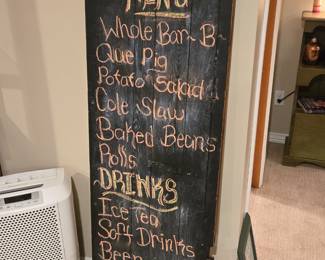 MENU
Whole Bar-B
Que Pig
Potato Salad
Cole Slaw
Baked Beans
Rolls
DRINKS
Ice Tea
Soft Drinks
Beer